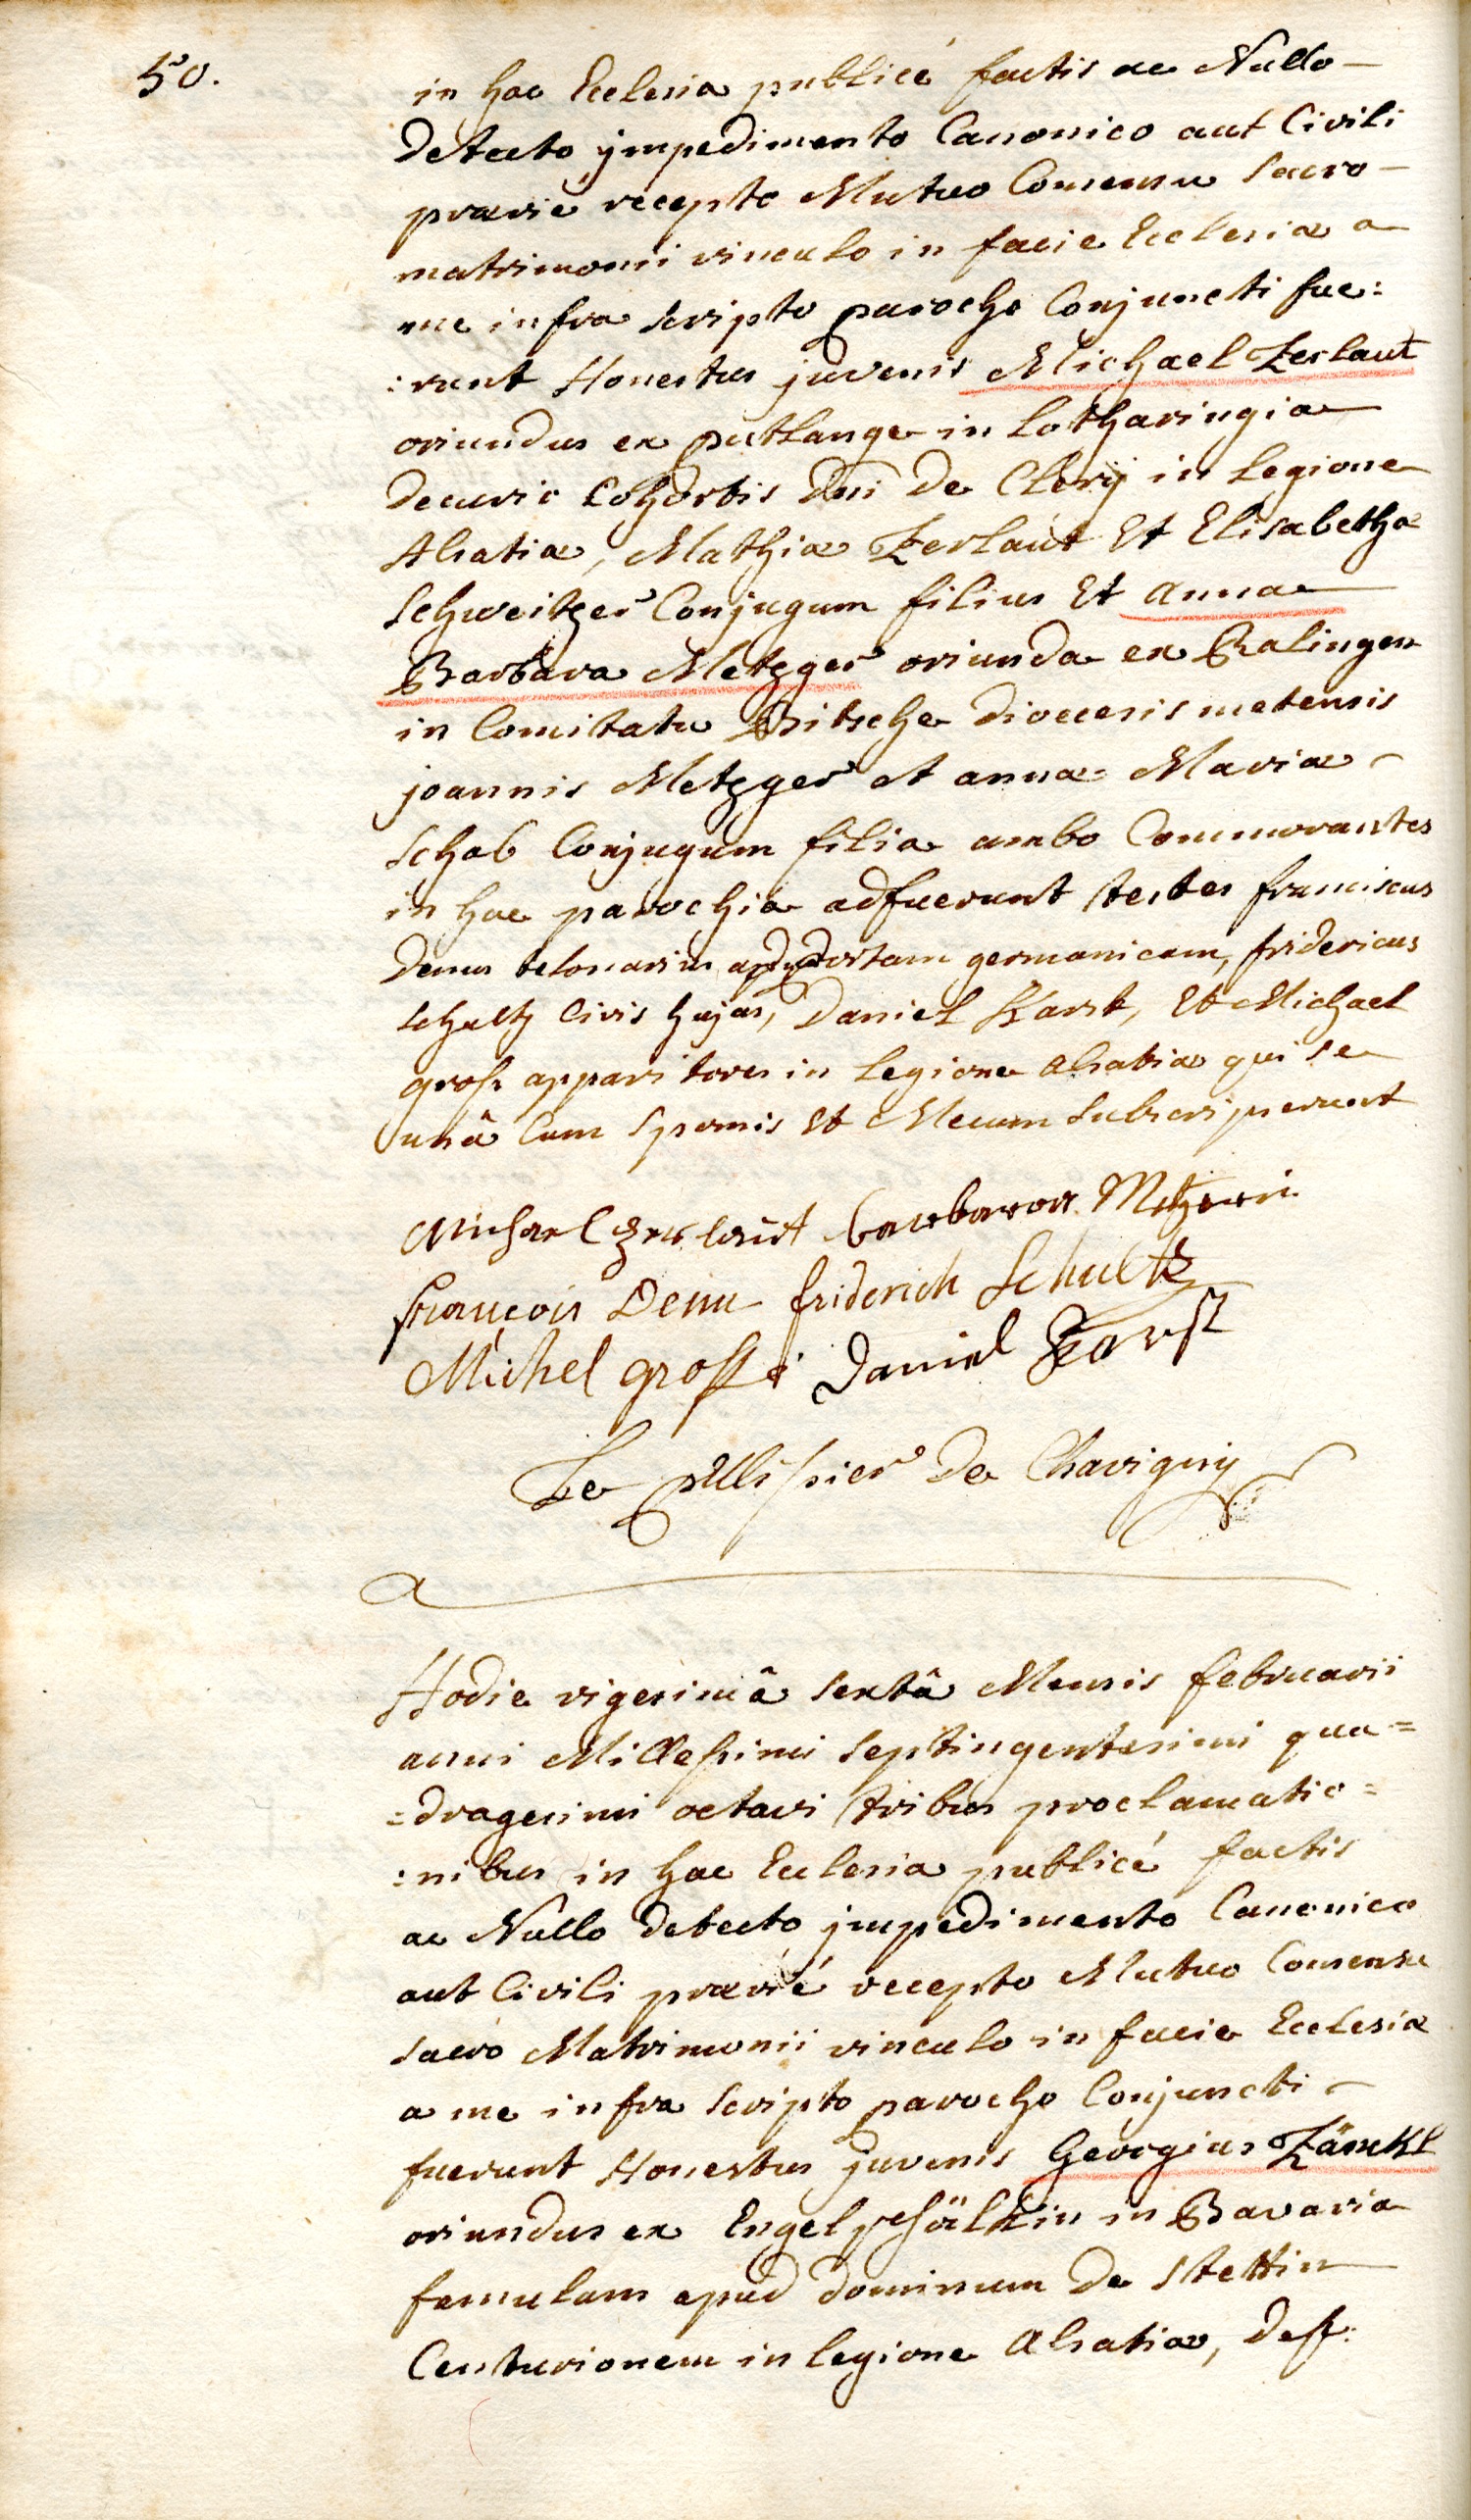 50.
in hac Ecclesia publicé factis ac Nullo -
detecto jmpedimento Canonico aut Civili
prævié recepto Mutuo Consensu Sacro -
matrimonii vinculo in facie Ecclesiæ a
me infra scripto parocho Conjuncti fue:
:runt Honestus juvenis Michael Zerlaut
oriundus ex putlange in Lotharingia
decurio Cohortis Dni De Clery in Legione
Alsatiæ, Mathiæ Zerlaut Et Elisabethæ
Schweitzer Conjugum filius Et anna
Barbara Metzger oriunda ex Ralingen
in Comitatu Bitsche dioecesis metensis
joannis Metzger et annæ Mariæ -
Schab Conjugum filia ambo Commorantes
in hac parochia adfuerunt testes franciscus
denu telonarius apud portam germanicam, fridericus
Schultz Civis hujas, Daniel Karst, Et Michael
gross apparitores in Legione Alsatiæ qui se
unâ Cum Sponsis Et Mecum Subscripserunt
Michael Zerlaut barbara Metzgerin
françois Denu friderich Schultz
Michel grosse Daniel Karst
Le pellissier De Chavigny
Hodie vigesimâ sextâ Mensis februarii
anni Millessimi Septingentesimi qua=
=dragesimi octavi tribus proclamatio=
:nibus in hac Ecclesia publicé factis
ac Nullo detecto jmpedimento Canonico
aut Civili prævié recepto Mutuo Consensu
Sacro Matrimonii vinculo in facie Ecclesiæ
a me infra Scripto parocho Conjuncti -
fuerunt Honestus juvenis Georgius Zänckl
oriundus ex in Bavaria
famulans apud dominum De Stettin
Centurionem in legione Alsatiæ, deff: